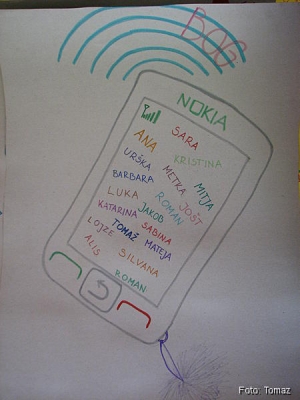 BOG
NOKIA
SARA
ANA
KRISTINA
URŠKA
METKA
MITJA
BARBARA
ROMAN
JOŠT
LUKA
JAKOB
KATARINA
SABINA
TOMAŽ
LOJZE
MATEJA
ALIS
SILVANA
ROMAN
Foto: Tomaz